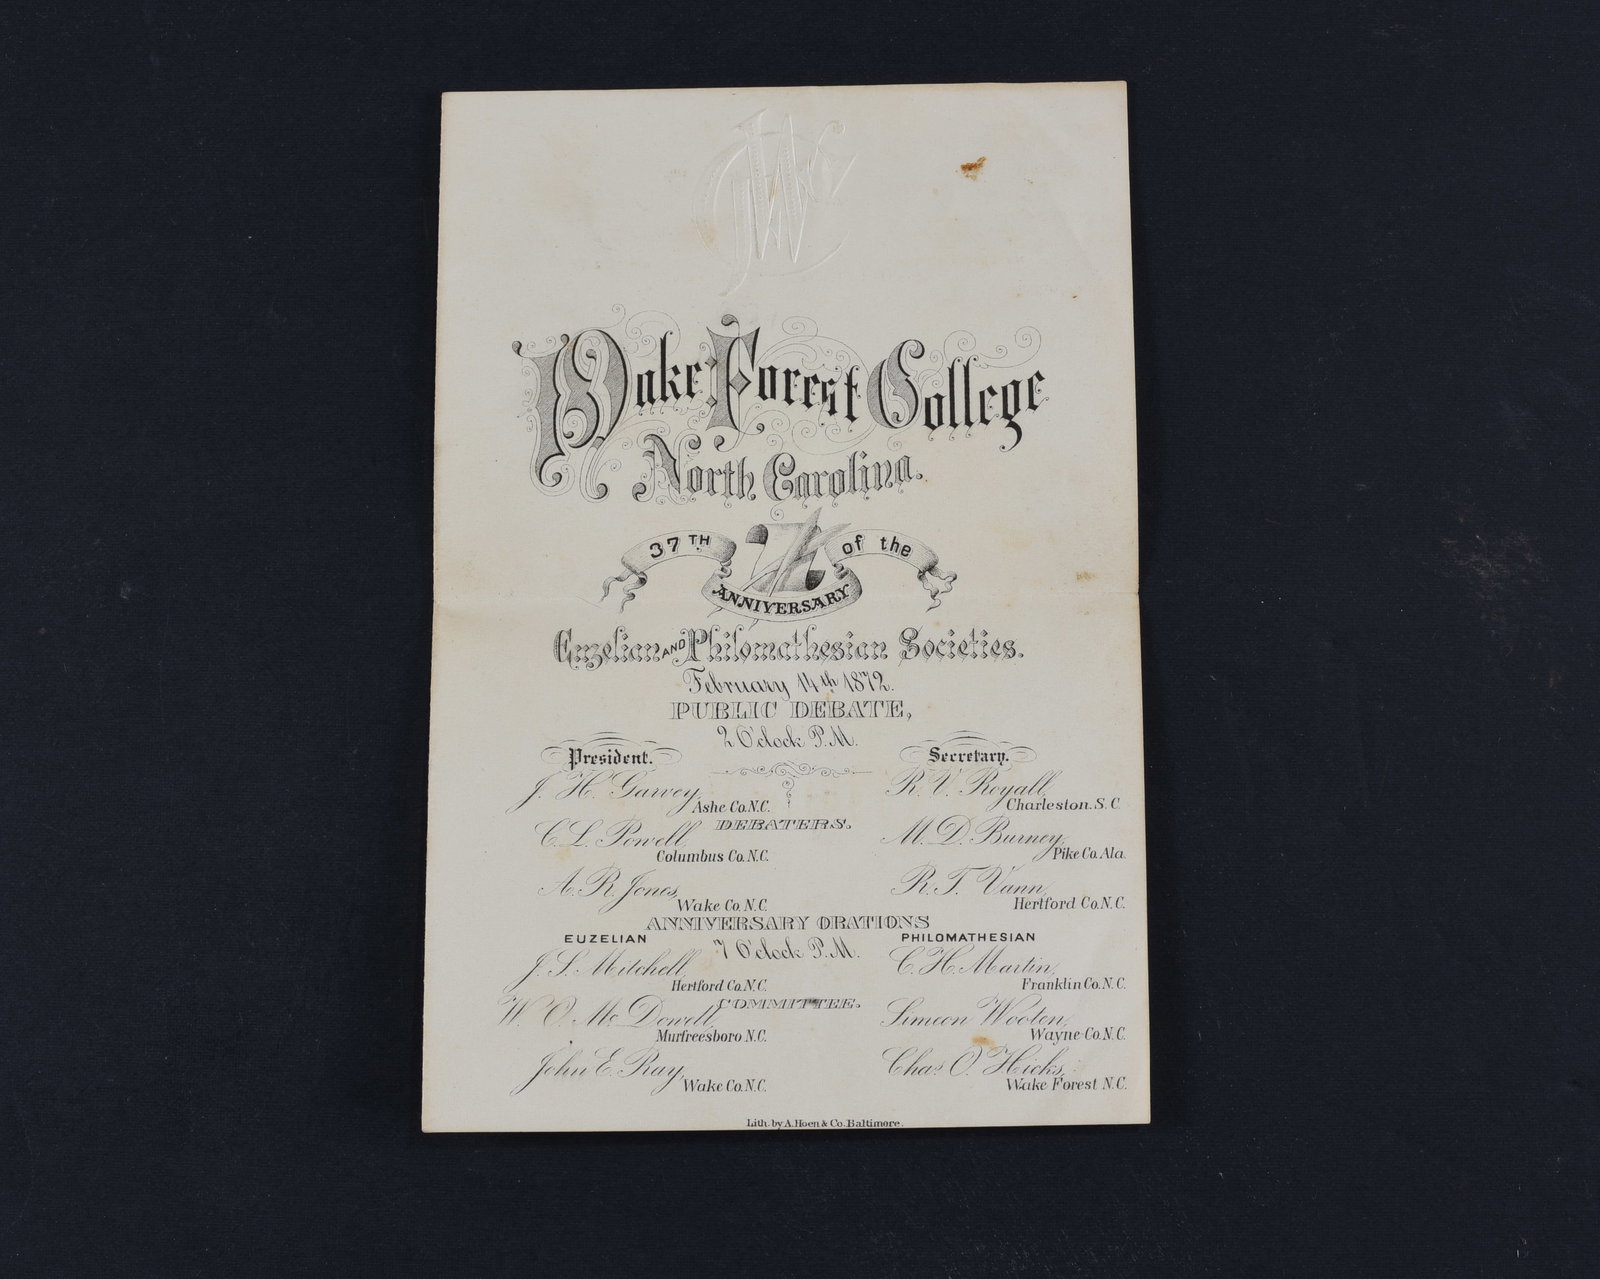 Wake Forest College
North Carolina.
37TH of the
ANNIVERSARY
Euzelian AND Philomathesian Societies.
February 14th 1872.
PUBLIC DEBATE,
2 O'clock P.M.
President. Secretary.
J. H. Garvey, R. V. Royall,
Ashe Co. N.C. Charleston. S. C.
DEBATERS.
C. L. Powell, M. D. Burney,
Columbus Co. N.C. Pike Co. Ala.
A. R. Jones, R. T. Vann,
Wake Co. N.C. Hertford Co. N.C.
ANNIVERSARY ORATIONS
EUZELIAN PHILOMATHESIAN
7 O'clock P.M.
J. S. Mitchell, C. H. Martin,
Hertford Co. N.C. Franklin Co. N.C.
COMMITTEE.
W. O. Mc Dowell, Simeon Wooten,
Murfreesboro N.C. Wayne Co. N.C.
John E. Ray, Chas O. Hicks,
Wake Co. N.C. Wake Forest N.C.
Lith. by A. Hoen & Co. Baltimore.